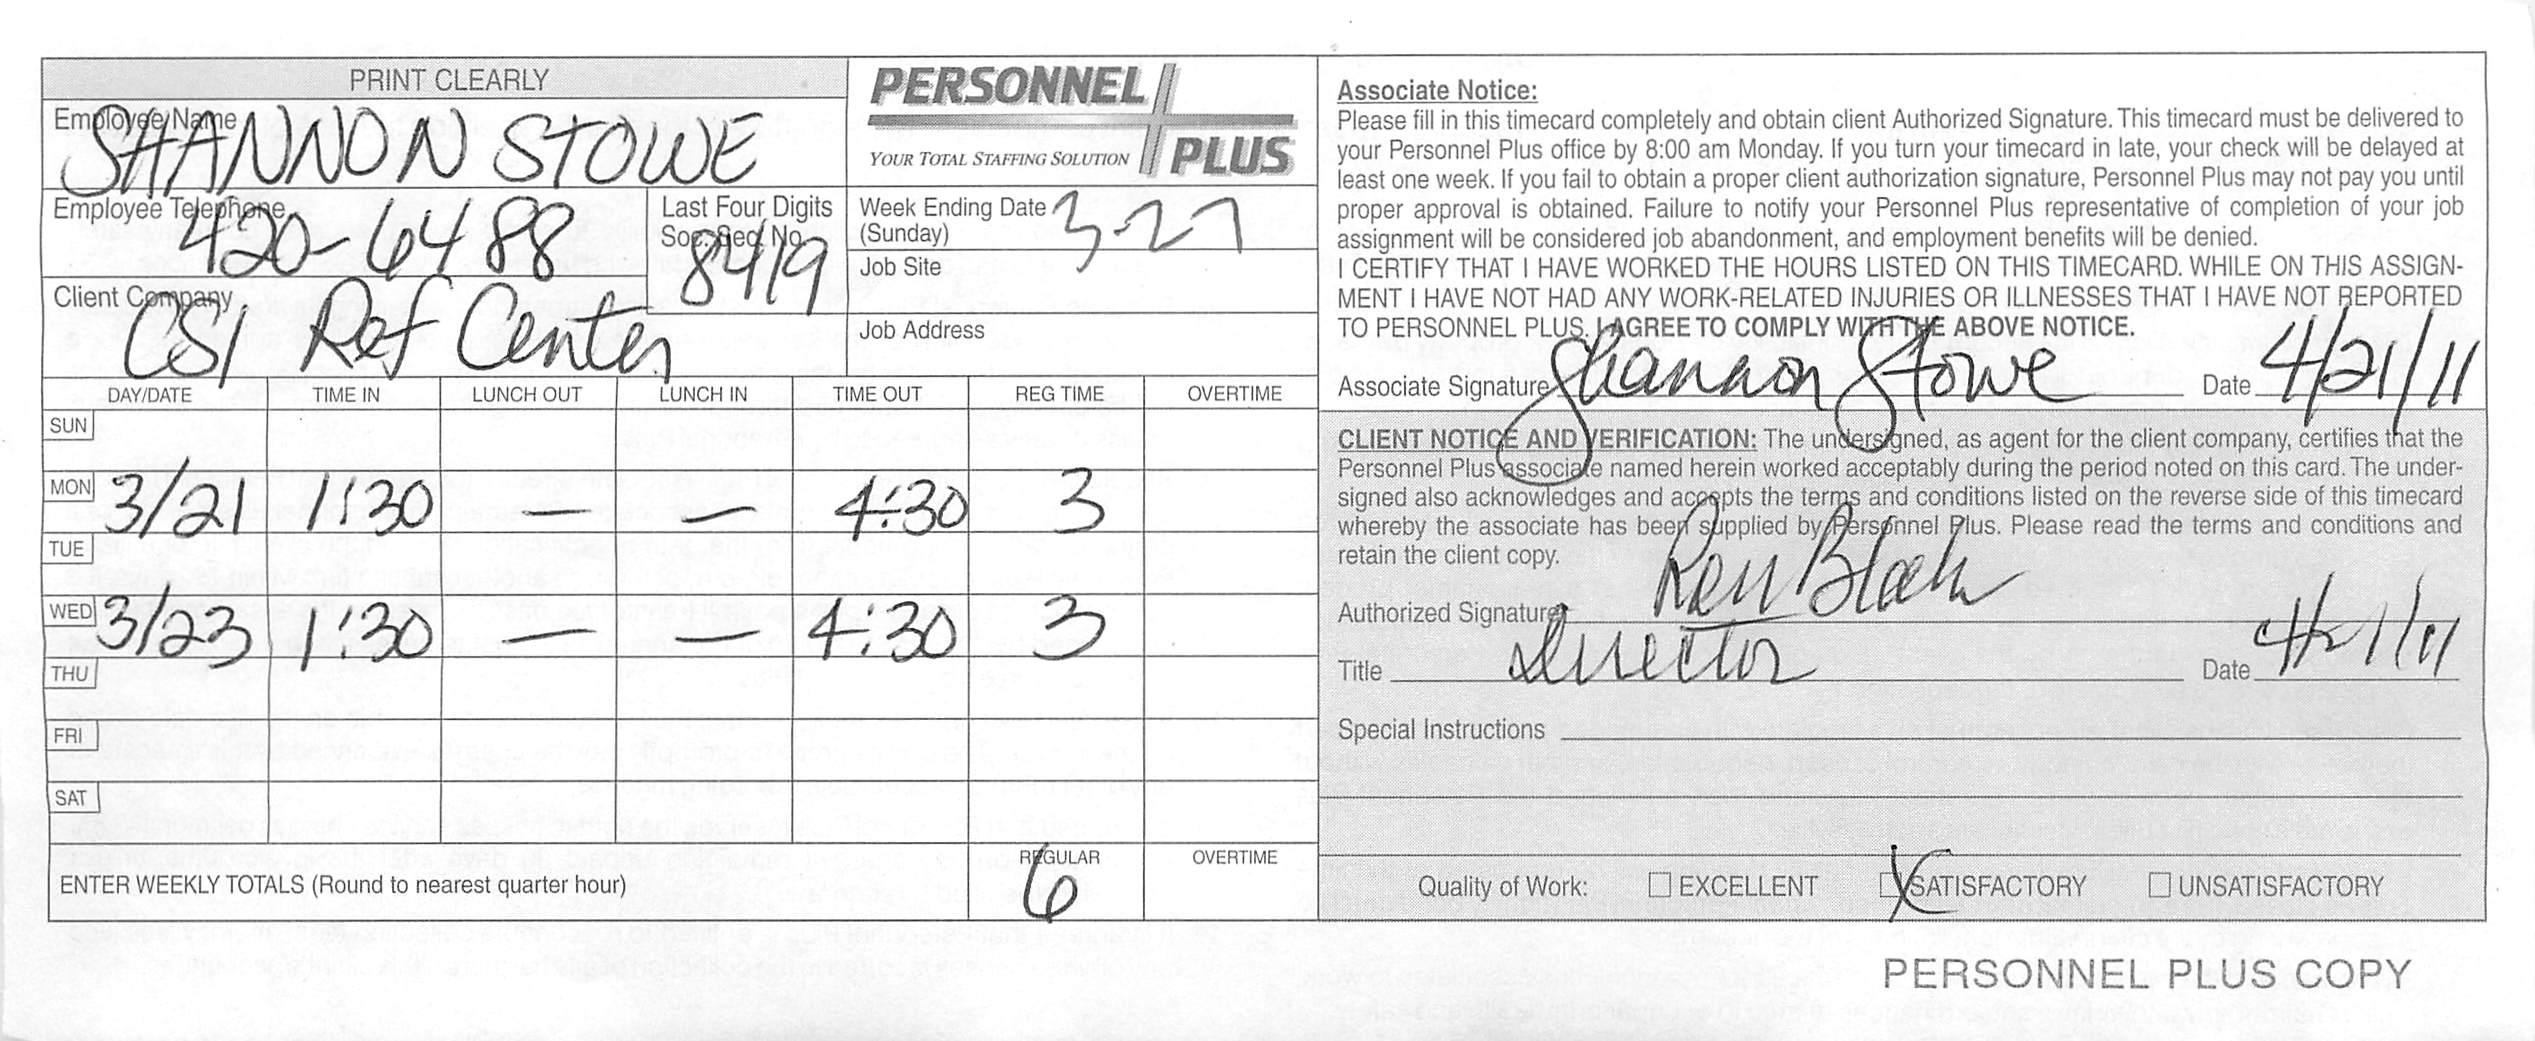 PRINT CLEARLY
Employee Name
SHANNON STOWE
Employee Telephone
420-6488
Last Four Digits
Soc. Sec. No.
8419
Client Company
CSI Ref Center
PERSONNEL
PLUS
YOUR TOTAL STAFFING SOLUTION
Week Ending Date 3-27
(Sunday)
Job Site
Job Address
DAY/DATE TIME IN LUNCH OUT LUNCH IN TIME OUT REG TIME OVERTIME
SUN
MON 3/21 1:30 — — 4:30 3
TUE
WED 3/23 1:30 — — 4:30 3
THU
FRI
SAT
REGULAR OVERTIME
ENTER WEEKLY TOTALS (Round to nearest quarter hour) 6
Associate Notice:
Please fill in this timecard completely and obtain client Authorized Signature. This timecard must be delivered to
your Personnel Plus office by 8:00 am Monday. If you turn your timecard in late, your check will be delayed at
least one week. If you fail to obtain a proper client authorization signature, Personnel Plus may not pay you until
proper approval is obtained. Failure to notify your Personnel Plus representative of completion of your job
assignment will be considered job abandonment, and employment benefits will be denied.
I CERTIFY THAT I HAVE WORKED THE HOURS LISTED ON THIS TIMECARD. WHILE ON THIS ASSIGN-
MENT I HAVE NOT HAD ANY WORK-RELATED INJURIES OR ILLNESSES THAT I HAVE NOT REPORTED
TO PERSONNEL PLUS. I AGREE TO COMPLY WITH THE ABOVE NOTICE.
Associate Signature Shannon Stowe Date 4/21/11
CLIENT NOTICE AND VERIFICATION: The undersigned, as agent for the client company, certifies that the
Personnel Plus associate named herein worked acceptably during the period noted on this card. The under-
signed also acknowledges and accepts the terms and conditions listed on the reverse side of this timecard
whereby the associate has been supplied by Personnel Plus. Please read the terms and conditions and
retain the client copy.
Authorized Signature
Title Director Date 4/21/11
Special Instructions
Quality of Work: EXCELLENT SATISFACTORY UNSATISFACTORY
PERSONNEL PLUS COPY